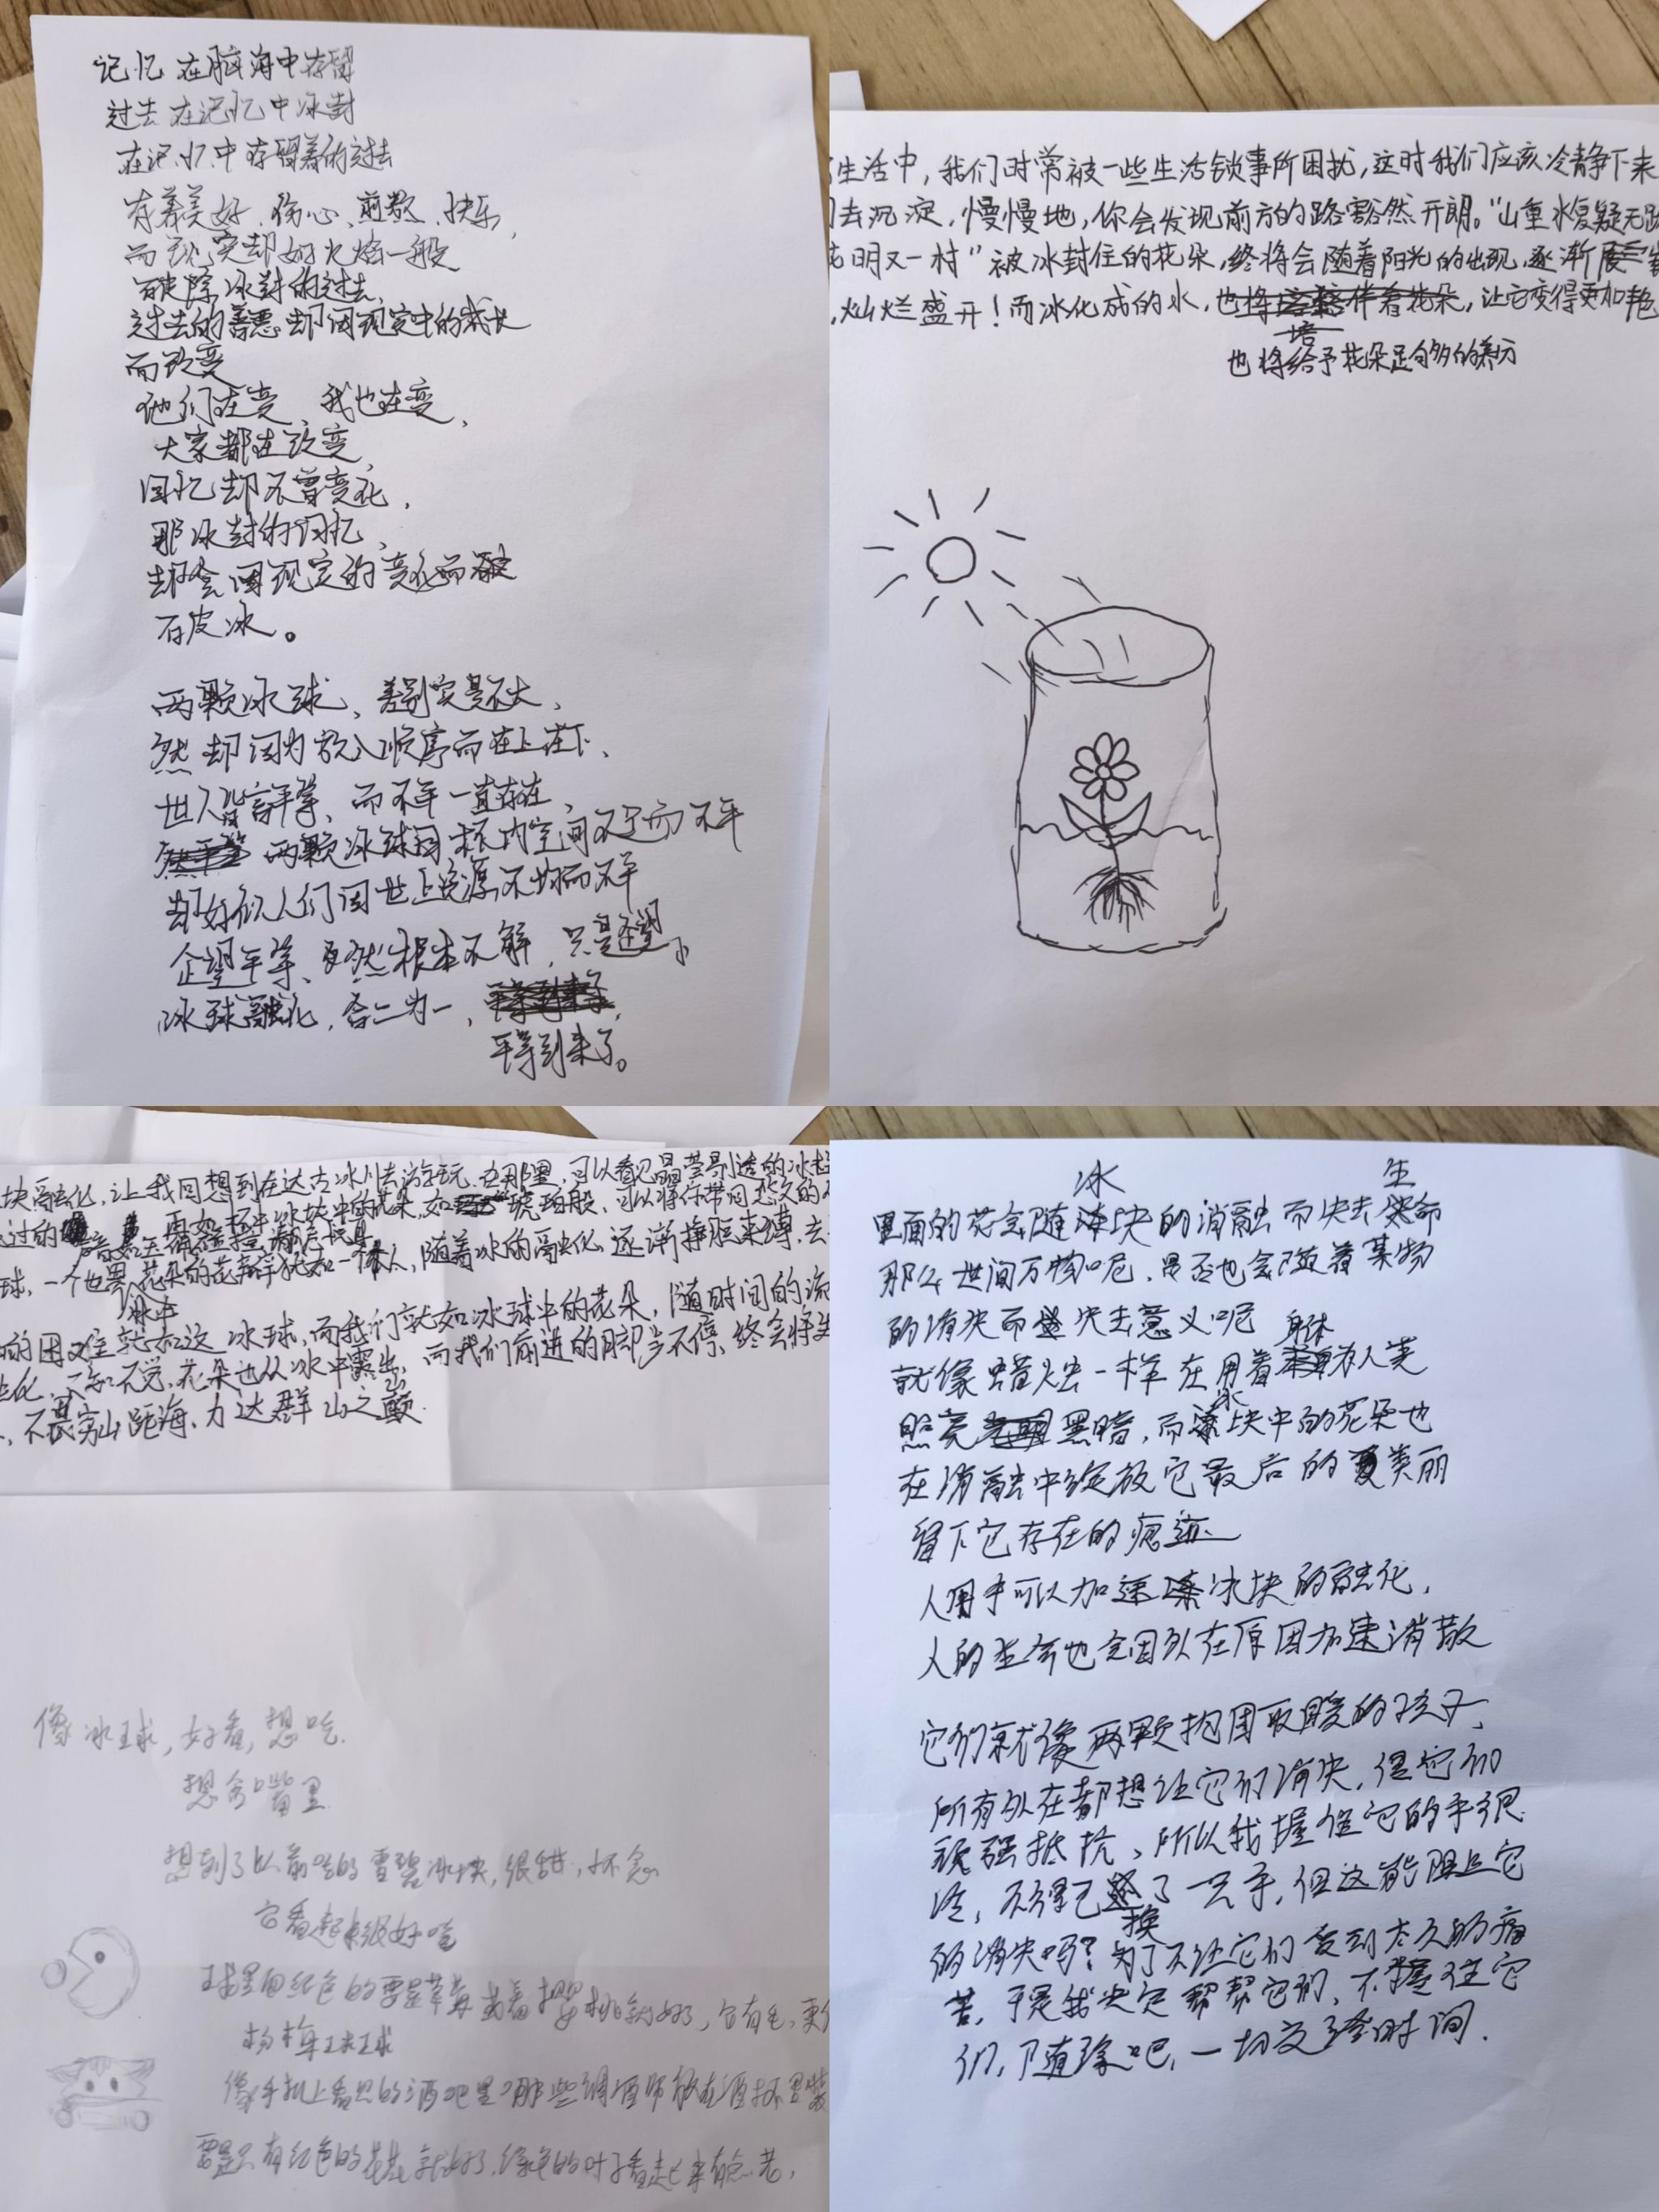 记忆 在脑海中存留
过去 在记忆中冰封
在记忆中存留着的过去
有着美好、伤心、煎熬、快乐,
而现实却如火焰一般
破除冰封的过去,
过去的善恶却因现实中的成长
而改变
他们在变、我也在变,
大家都在改变,
回忆却不曾变化,
那冰封的回忆,
却会因现实的变化而
破冰。
两颗冰球、差别实是不大、
然却因为放入顺序而在上在下、
世人皆言平等、而不平一直存在,
两颗冰球因杯内空间不足而不平
却好似人们因世上资源不均而不平
企望平等、自然根本不解,只是还望。
冰球融化,合二为一,
平等到来了。
生活中,我们时常被一些生活锁事所困扰,这时我们应该冷静下来
去沉淀,慢慢地,你会发现前方的路豁然开朗。“山重水复疑无路
明又一村”被冰封住的花朵,终将会随着阳光的出现,逐渐
,灿烂盛开!而冰化成的水,也将伴着花朵,让它变得更加艳
培
也将给予花朵足够多的养分
块融化,让我回想到在达古冰川去游玩,在那里,可以看见晶莹剔透的冰
过的 冰块中的花朵,如琥珀般,可以将你带回悠久的
球,一个世界 花朵的花瓣犹如一个人,随着冰的融化,逐渐挣脱束缚,去
冰中
的困难就如这冰球,而我们就如冰球中的花朵,随时间的流
化,不知不觉,花朵也从冰中露出,而我们前进的脚步不停,终会将
,不畏穷山距海,力达群山之巅.
像冰球,好看,想吃.
想含嘴里
想到了以前吃的雪碧冰块,很甜,怀念
它看起来很好吃
球里面红色的要是草莓或着樱桃就好了,它有毛,更
杨梅球球
像手机上看见的酒吧里那些调酒师放在酒杯里
要是只有红色的花就好了,绿色的叶子看起来有点老,
冰 生
里面的花会随冰块的消融而失去生命
那么世间万物呢,是否也会随着某物
的消失而失去意义呢
身体
就像蜡烛一样在用着为人类
照亮黑暗,而冰块中的花朵也
在消融中绽放它最后的美丽
留下它存在的痕迹
人用手可以加速冰块的融化,
人的生命也会因外在原因加速消散
它们就像两颗抱团取暖的孩子、
所有外在都想让它们消失,但它们
顽强抵抗、所以我握住它的手很
冷,不得已换了一只手,但这能阻止它
的消失吗?为了不让它们受到太久的痛
苦,于是我决定帮帮它们,不握住它
们,了随缘吧,一切交给时间.